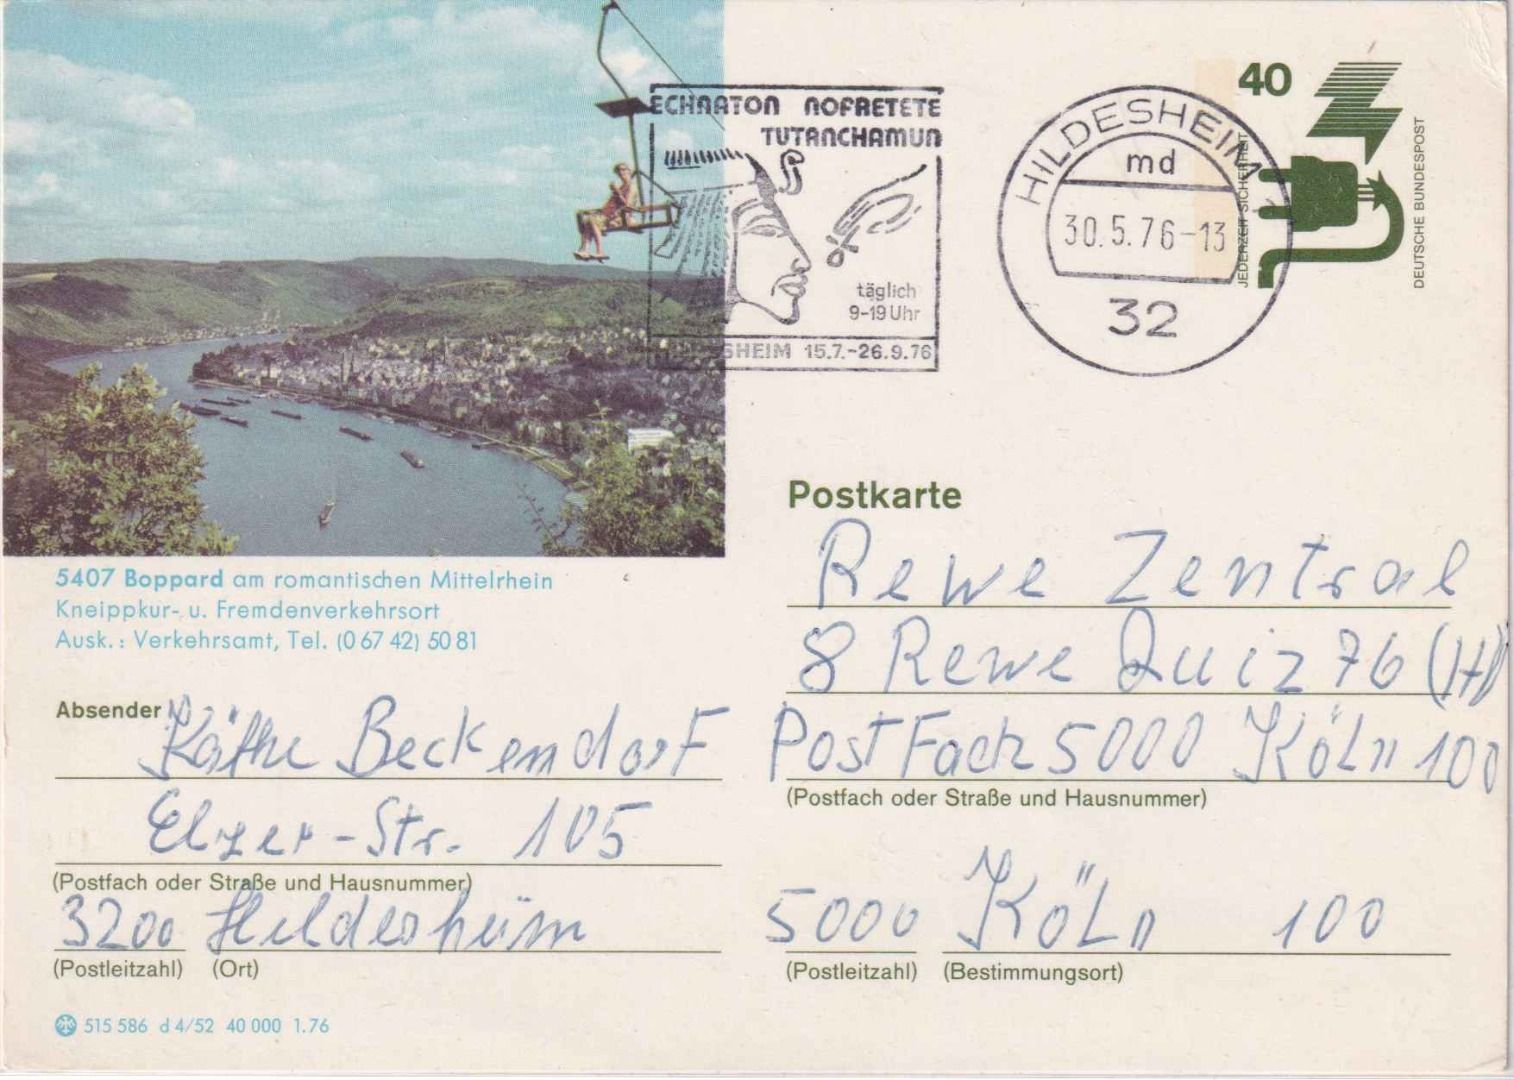 ECHNATON NOFRETETE
TUTANCHAMUN
täglich
9-19 Uhr
SHEIM 15.7.-26.9.76
HILDESHEIM
md
30.5.76-13
32
40
JEDERZEIT SICHERHEIT
DEUTSCHE BUNDESPOST
5407 Boppard am romantischen Mittelrhein
Kneippkur- u. Fremdenverkehrsort
Ausk.: Verkehrsamt, Tel. (0 67 42) 50 81
Postkarte
Rewe Zentral
8 Rewe Quiz 76 (H)
PostFach 5000 Köln 100
(Postfach oder Straße und Hausnummer)
5000 Köln 100
(Postleitzahl) (Bestimmungsort)
Absender
Käthe Beckendorf
Elzer-Str. 105
(Postfach oder Straße und Hausnummer)
3200 Hildesheim
(Postleitzahl) (Ort)
515 586 d 4/52 40 000 1.76